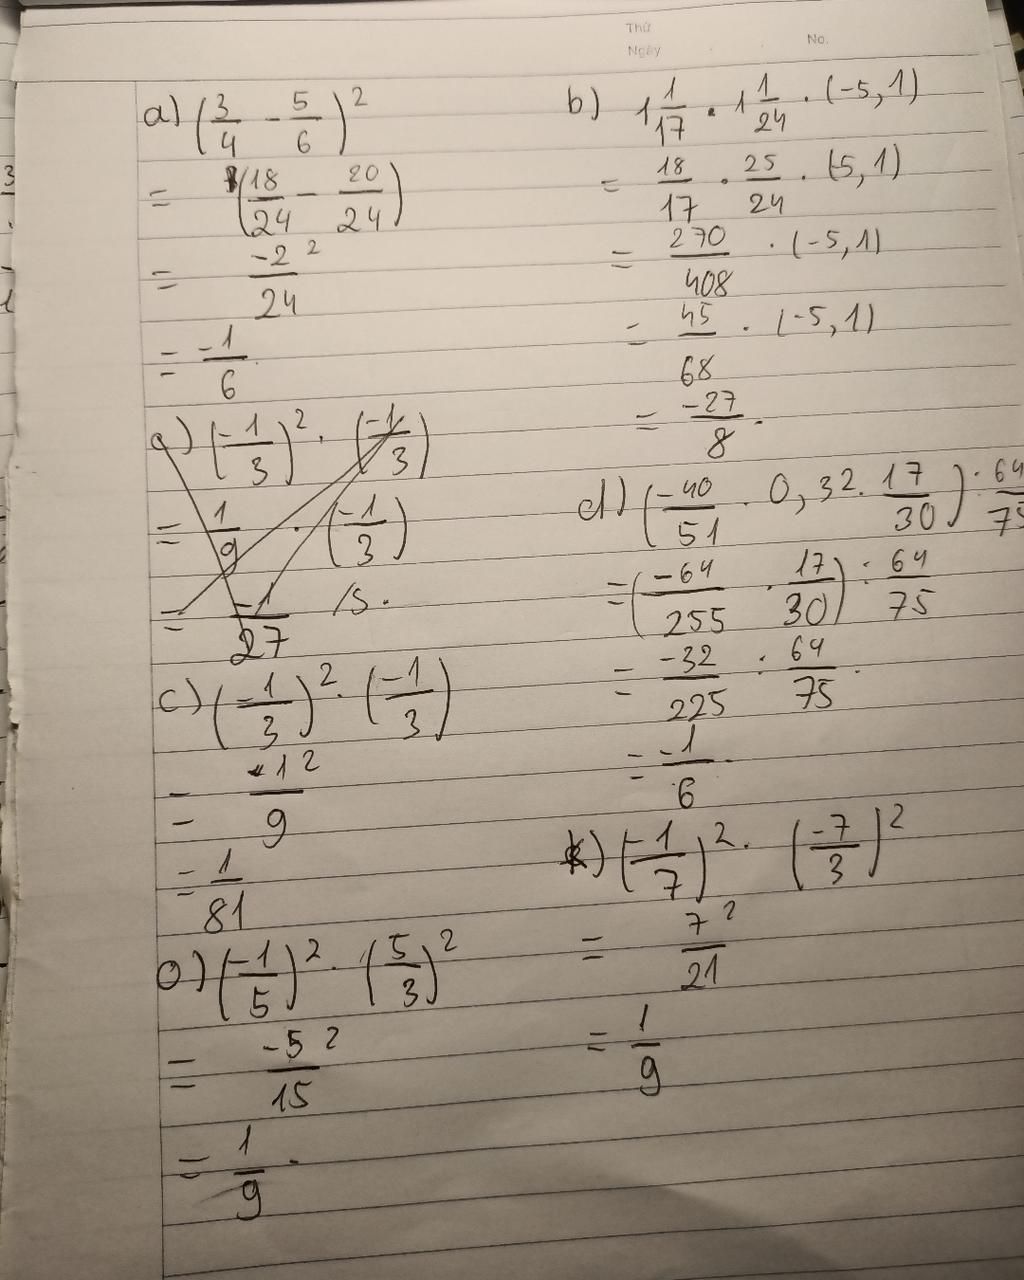 Thứ
Ngày No.
a) (3/4 - 5/6)²
= (18/24 - 20/24)
= -2²/24
= -1/6
e) (-1/3)² · (-1/3)
= 1/9 · (-1/3)
= -1/27 /S.
c) (-1/3)² · (-1/3)
= -1²/9
= 1/81
e) (-1/5)² · (5/3)²
= -5²/15
= 1/9 .
b) 1 1/17 · 1 1/24 · (-5,1)
= 18/17 · 25/24 · (-5,1)
= 270/408 · (-5,1)
= 45/68 · (-5,1)
= -27/8 .
d) (-40/51 · 0,32 · 17/30) : 64/75
= (-64/255 · 17/30) : 64/75
= -32/225 : 64/75 .
= -1/6 .
k) (-1/7)² · (-7/3)²
= 7²/21
= 1/9
3
1